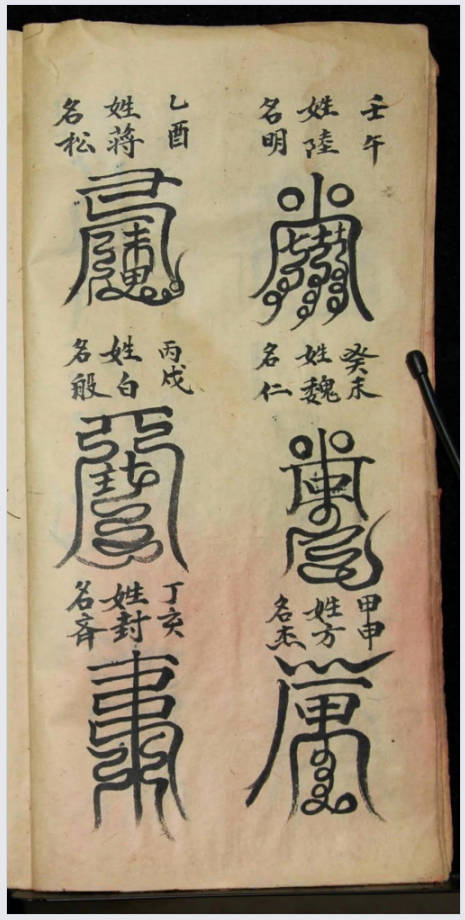 壬午
姓陸
名明
癸未
姓魏
名仁
甲申
姓方
名杰
乙酉
姓蔣
名松
丙戌
姓白
名般
丁亥
姓封
名斉